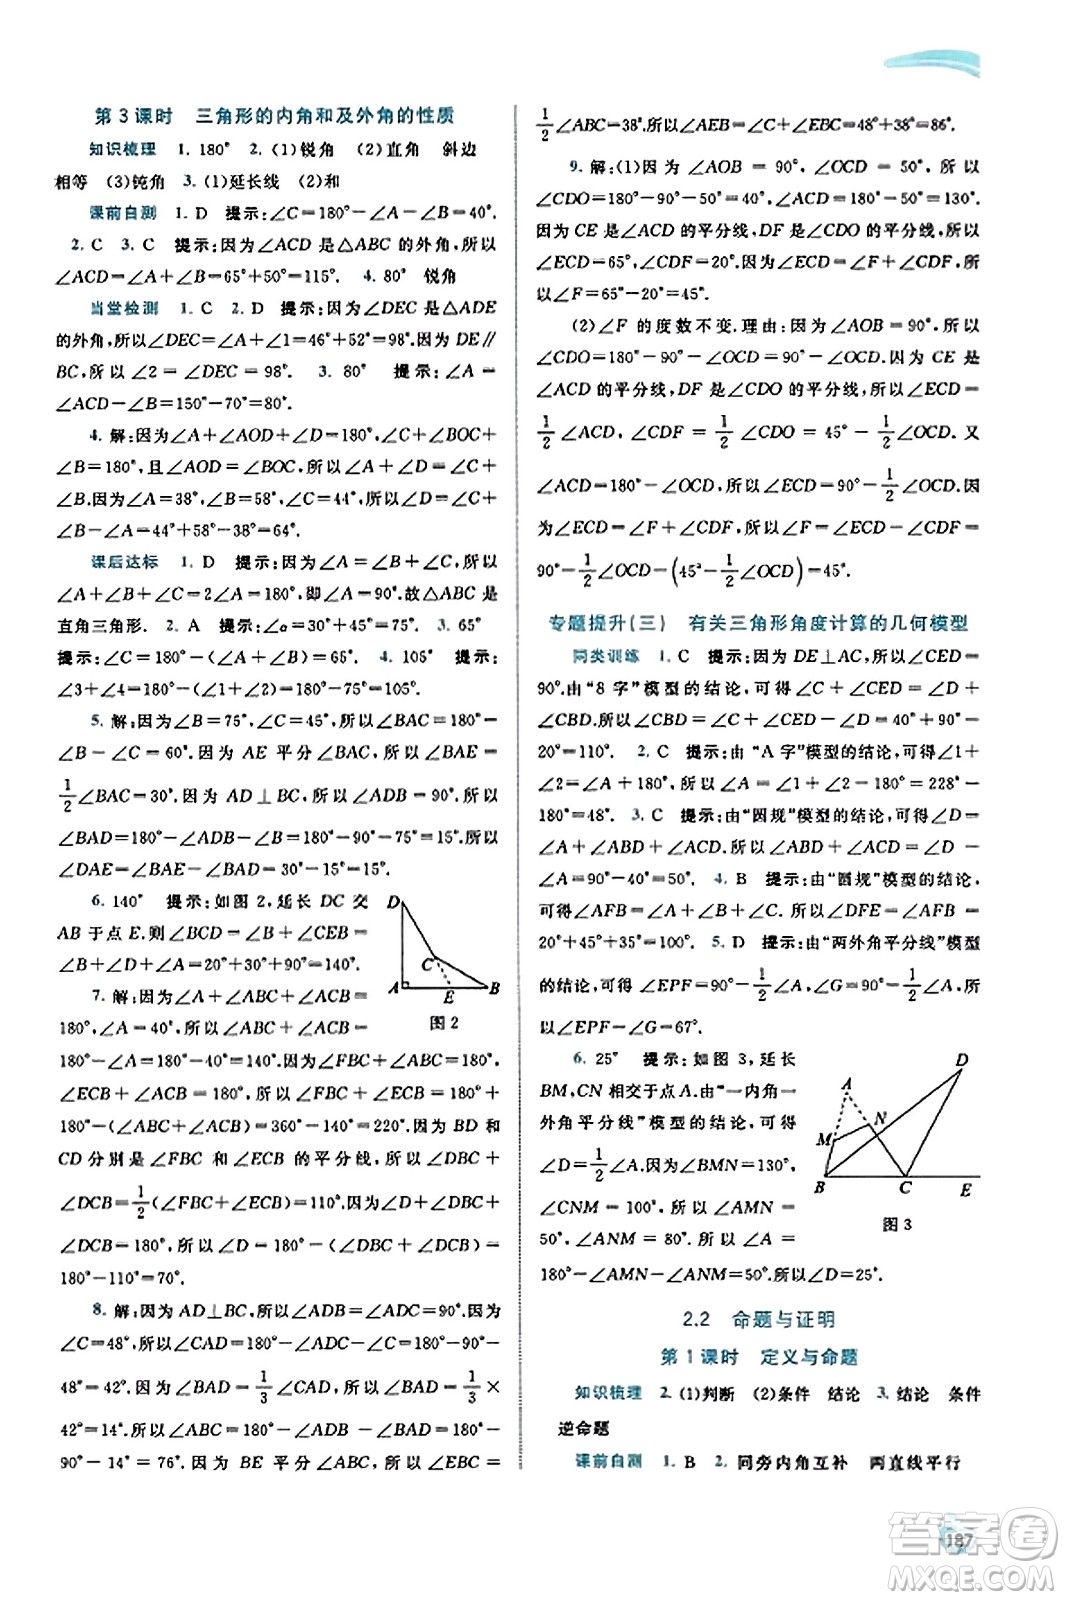 第3课时 三角形的内角和及外角的性质
知识梳理 1. 180° 2. (1)锐角 (2)直角 斜边
相等 (3)钝角 3. (1)延长线 (2)和
课前自测 1. D 提示:∠C=180°-∠A-∠B=40°.
2. C 3. C 提示:因为∠ACD 是△ABC 的外角,所以
∠ACD=∠A+∠B=65°+50°=115°. 4. 80° 锐角
当堂检测 1. C 2. D 提示:因为∠DEC 是△ADE
的外角,所以∠DEC=∠A+∠1=46°+52°=98°.因为 DE∥
BC,所以∠2=∠DEC=98°. 3. 80° 提示:∠A=
∠ACD-∠B=150°-70°=80°.
4. 解:因为∠A+∠AOD+∠D=180°,∠C+∠BOC+
∠B=180°,且∠AOD=∠BOC,所以∠A+∠D=∠C+
∠B.因为∠A=38°,∠B=58°,∠C=44°,所以∠D=∠C+
∠B-∠A=44°+58°-38°=64°.
课后达标 1. D 提示:因为∠A=∠B+∠C,所以
∠A+∠B+∠C=2∠A=180°,即∠A=90°.故△ABC 是
直角三角形. 2. A 提示:∠α=30°+45°=75°. 3. 65°
提示:∠C=180°-30°-85°=65°. 4. 105° 提示:∠2=
∠3+∠4=180°-∠1=180°-75°=105°.
5. 解:因为∠B=75°,∠C=45°,所以∠BAC=180°-
∠B-∠C=60°.因为 AE 平分∠BAC,所以∠BAE=
1/2∠BAC=30°.因为 AD⊥BC,所以∠ADB=90°.所以
∠BAD=180°-∠ADB-∠B=180°-90°-75°=15°.所以
∠DAE=∠BAE-∠BAD=30°-15°=15°.
6. 140° 提示:如图 2,延长 DC 交
AB 于点 E,则∠BCD=∠B+∠CEB=
∠B+∠D+∠A=20°+30°+90°=140°.
D
C
A
E
B
图 2
7. 解:因为∠A+∠ABC+∠ACB=
180°,∠A=40°,所以∠ABC+∠ACB=
180°-∠A=180°-40°=140°.因为∠FBC+∠ABC=180°,
∠ECB+∠ACB=180°,所以∠FBC+∠ECB=180°+
180°-(∠ABC+∠ACB)=360°-140°=220°.因为 BD 和
CD 分别是∠FBC 和∠ECB 的平分线,所以∠DBC+
∠DCB=1/2(∠FBC+∠ECB)=110°.因为∠D+∠DBC+
∠DCB=180°,所以∠D=180°-(∠DBC+∠DCB)=
180°-110°=70°.
8. 解:因为 AD⊥BC,所以∠ADB=∠ADC=90°.因为
∠C=48°,所以∠CAD=180°-∠ADC-∠C=180°-90°-
48°=42°.因为∠BAD=1/3∠CAD,所以∠BAD=1/3×
42°=14°.所以∠ABC=180°-∠ADB-∠BAD=180°-
90°-14°=76°.因为 BE 平分∠ABC,所以∠EBC=
1/2∠ABC=38°.所以∠AEB=∠C+∠EBC=48°+38°=86°.
9. 解:(1)因为∠AOB=90°,∠OCD=50°,所以
∠CDO=180°-90°-50°=40°.所以∠ACD=180°-50°=130°.
因为 CE 是∠ACD 的平分线,DF 是∠CDO 的平分线,所以
∠ECD=65°,∠CDF=20°.因为∠ECD=∠F+∠CDF,所
以∠F=65°-20°=45°.
(2)∠F 的度数不变.理由:因为∠AOB=90°,所以
∠CDO=180°-90°-∠OCD=90°-∠OCD.因为 CE 是
∠ACD 的平分线,DF 是∠CDO 的平分线,所以∠ECD=
1/2∠ACD,∠CDF=1/2∠CDO=45°-1/2∠OCD.又
∠ACD=180°-∠OCD,所以∠ECD=90°-1/2∠OCD.因
为∠ECD=∠F+∠CDF,所以∠F=∠ECD-∠CDF=
90°-1/2∠OCD-(45°-1/2∠OCD)=45°.
专题提升(三) 有关三角形角度计算的几何模型
同类训练 1. C 提示:因为 DE⊥AC,所以∠CED=
90°.由“8 字”模型的结论,可得∠C+∠CED=∠D+
∠CBD.所以∠CBD=∠C+∠CED-∠D=40°+90°-
20°=110°. 2. C 提示:由“A 字”模型的结论,可得∠1+
∠2=∠A+180°.所以∠A=∠1+∠2-180°=228°-
180°=48°. 3. C 提示:由“圆规”模型的结论,可得∠D=
∠A+∠ABD+∠ACD=90°.所以∠ABD+∠ACD=∠D-
∠A=90°-45°=45°. 4. B 提示:由“圆规”模型的结论,
可得∠AFB=∠A+∠B+∠C.所以∠DFE=∠AFB=
20°+45°+35°=100°. 5. D 提示:由“两外角平分线”模型
的结论,可得∠EPF=90°-1/2∠A,∠G=90°-1/2∠A.所
以∠EPF=∠G=67°.
6. 25° 提示:如图 3,延长
BM,CN 相交于点 A.由“一内角一
外角平分线”模型的结论,可得
∠D=1/2∠A.因为∠BMN=130°,
∠CNM=100°,所以∠AMN=
50°,∠ANM=80°.所以∠A=
180°-∠AMN-∠ANM=50°.所以∠D=25°.
D
A
N
M
B
C
E
图 3
2.2 命题与证明
第1课时 定义与命题
知识梳理 2. (1)判断 (2)条件 结论 3. 结论 条件
逆命题
课前自测 1. B 2. 同旁内角互补 两直线平行
187
答案卷
MXQE.COM